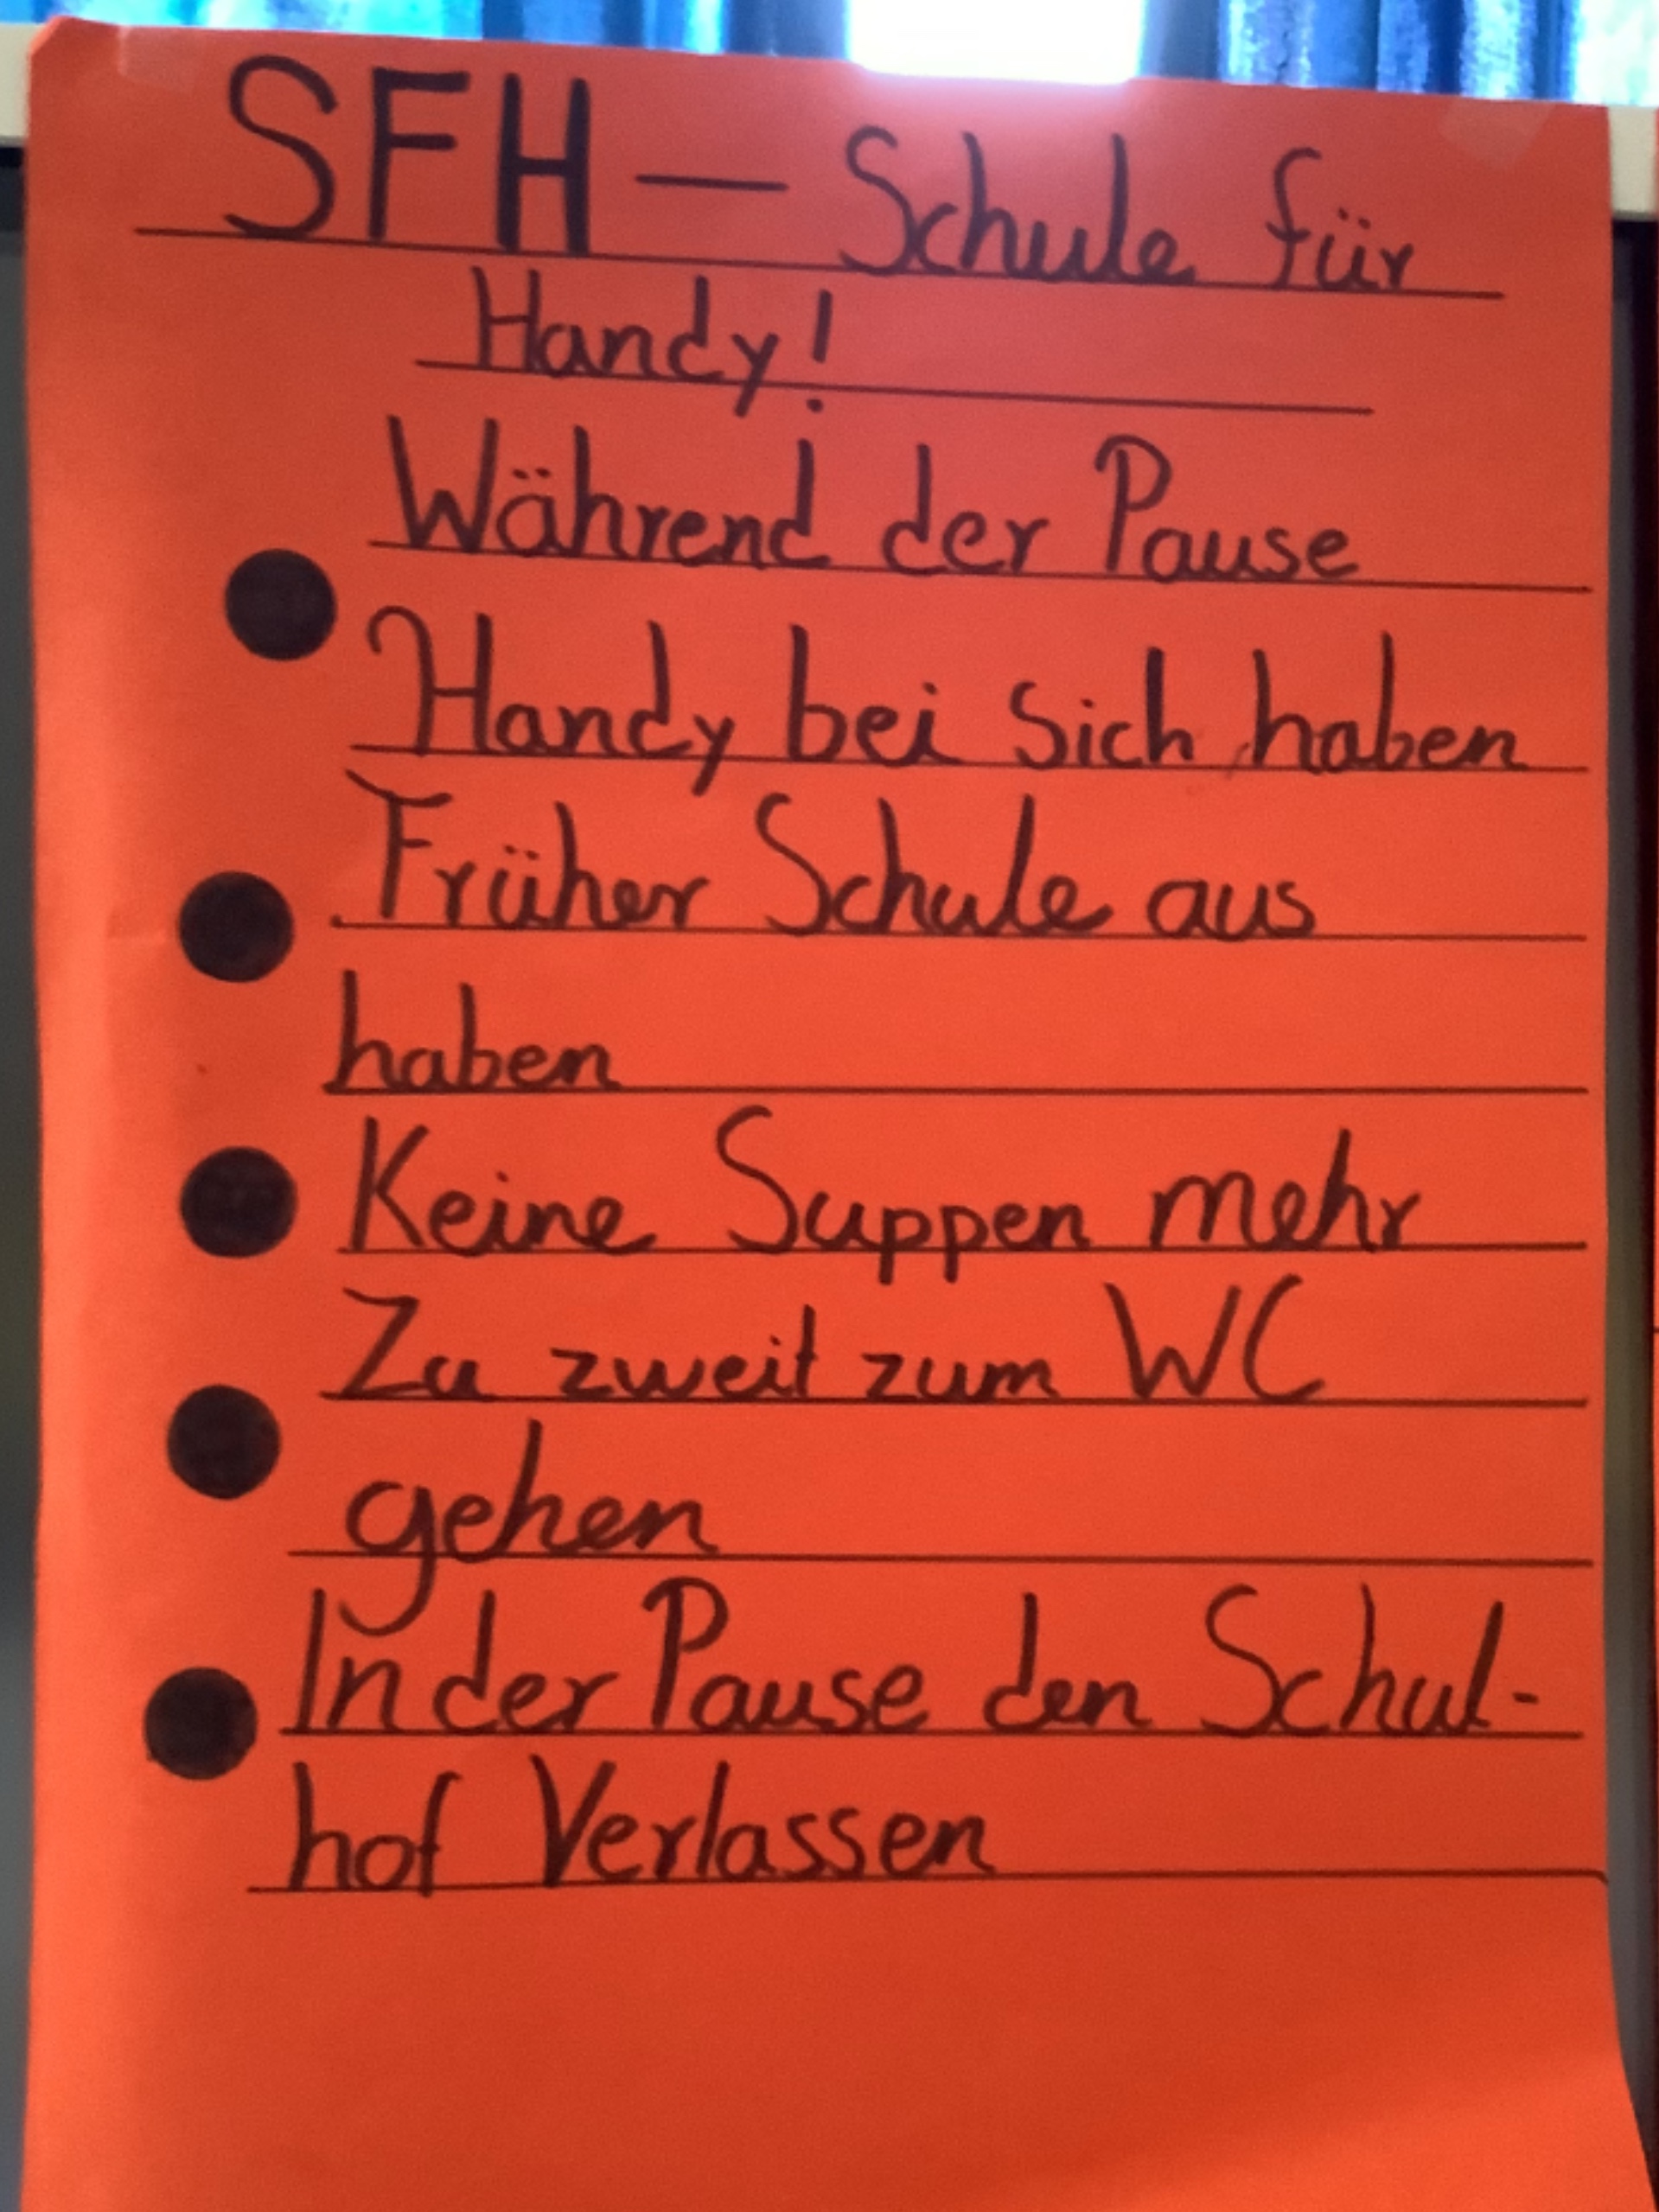 SFH — Schule für
Handy!
Während der Pause
Handy bei sich haben
Früher Schule aus
haben
Keine Suppen mehr
Zu zweit zum WC
gehen
In der Pause den Schul-
hof Verlassen